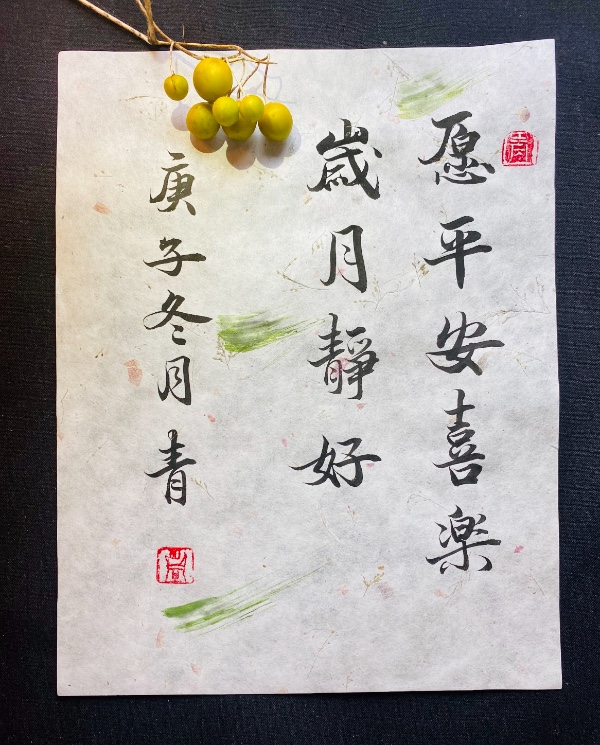 愿平安喜楽
歲月靜好
庚子冬月青